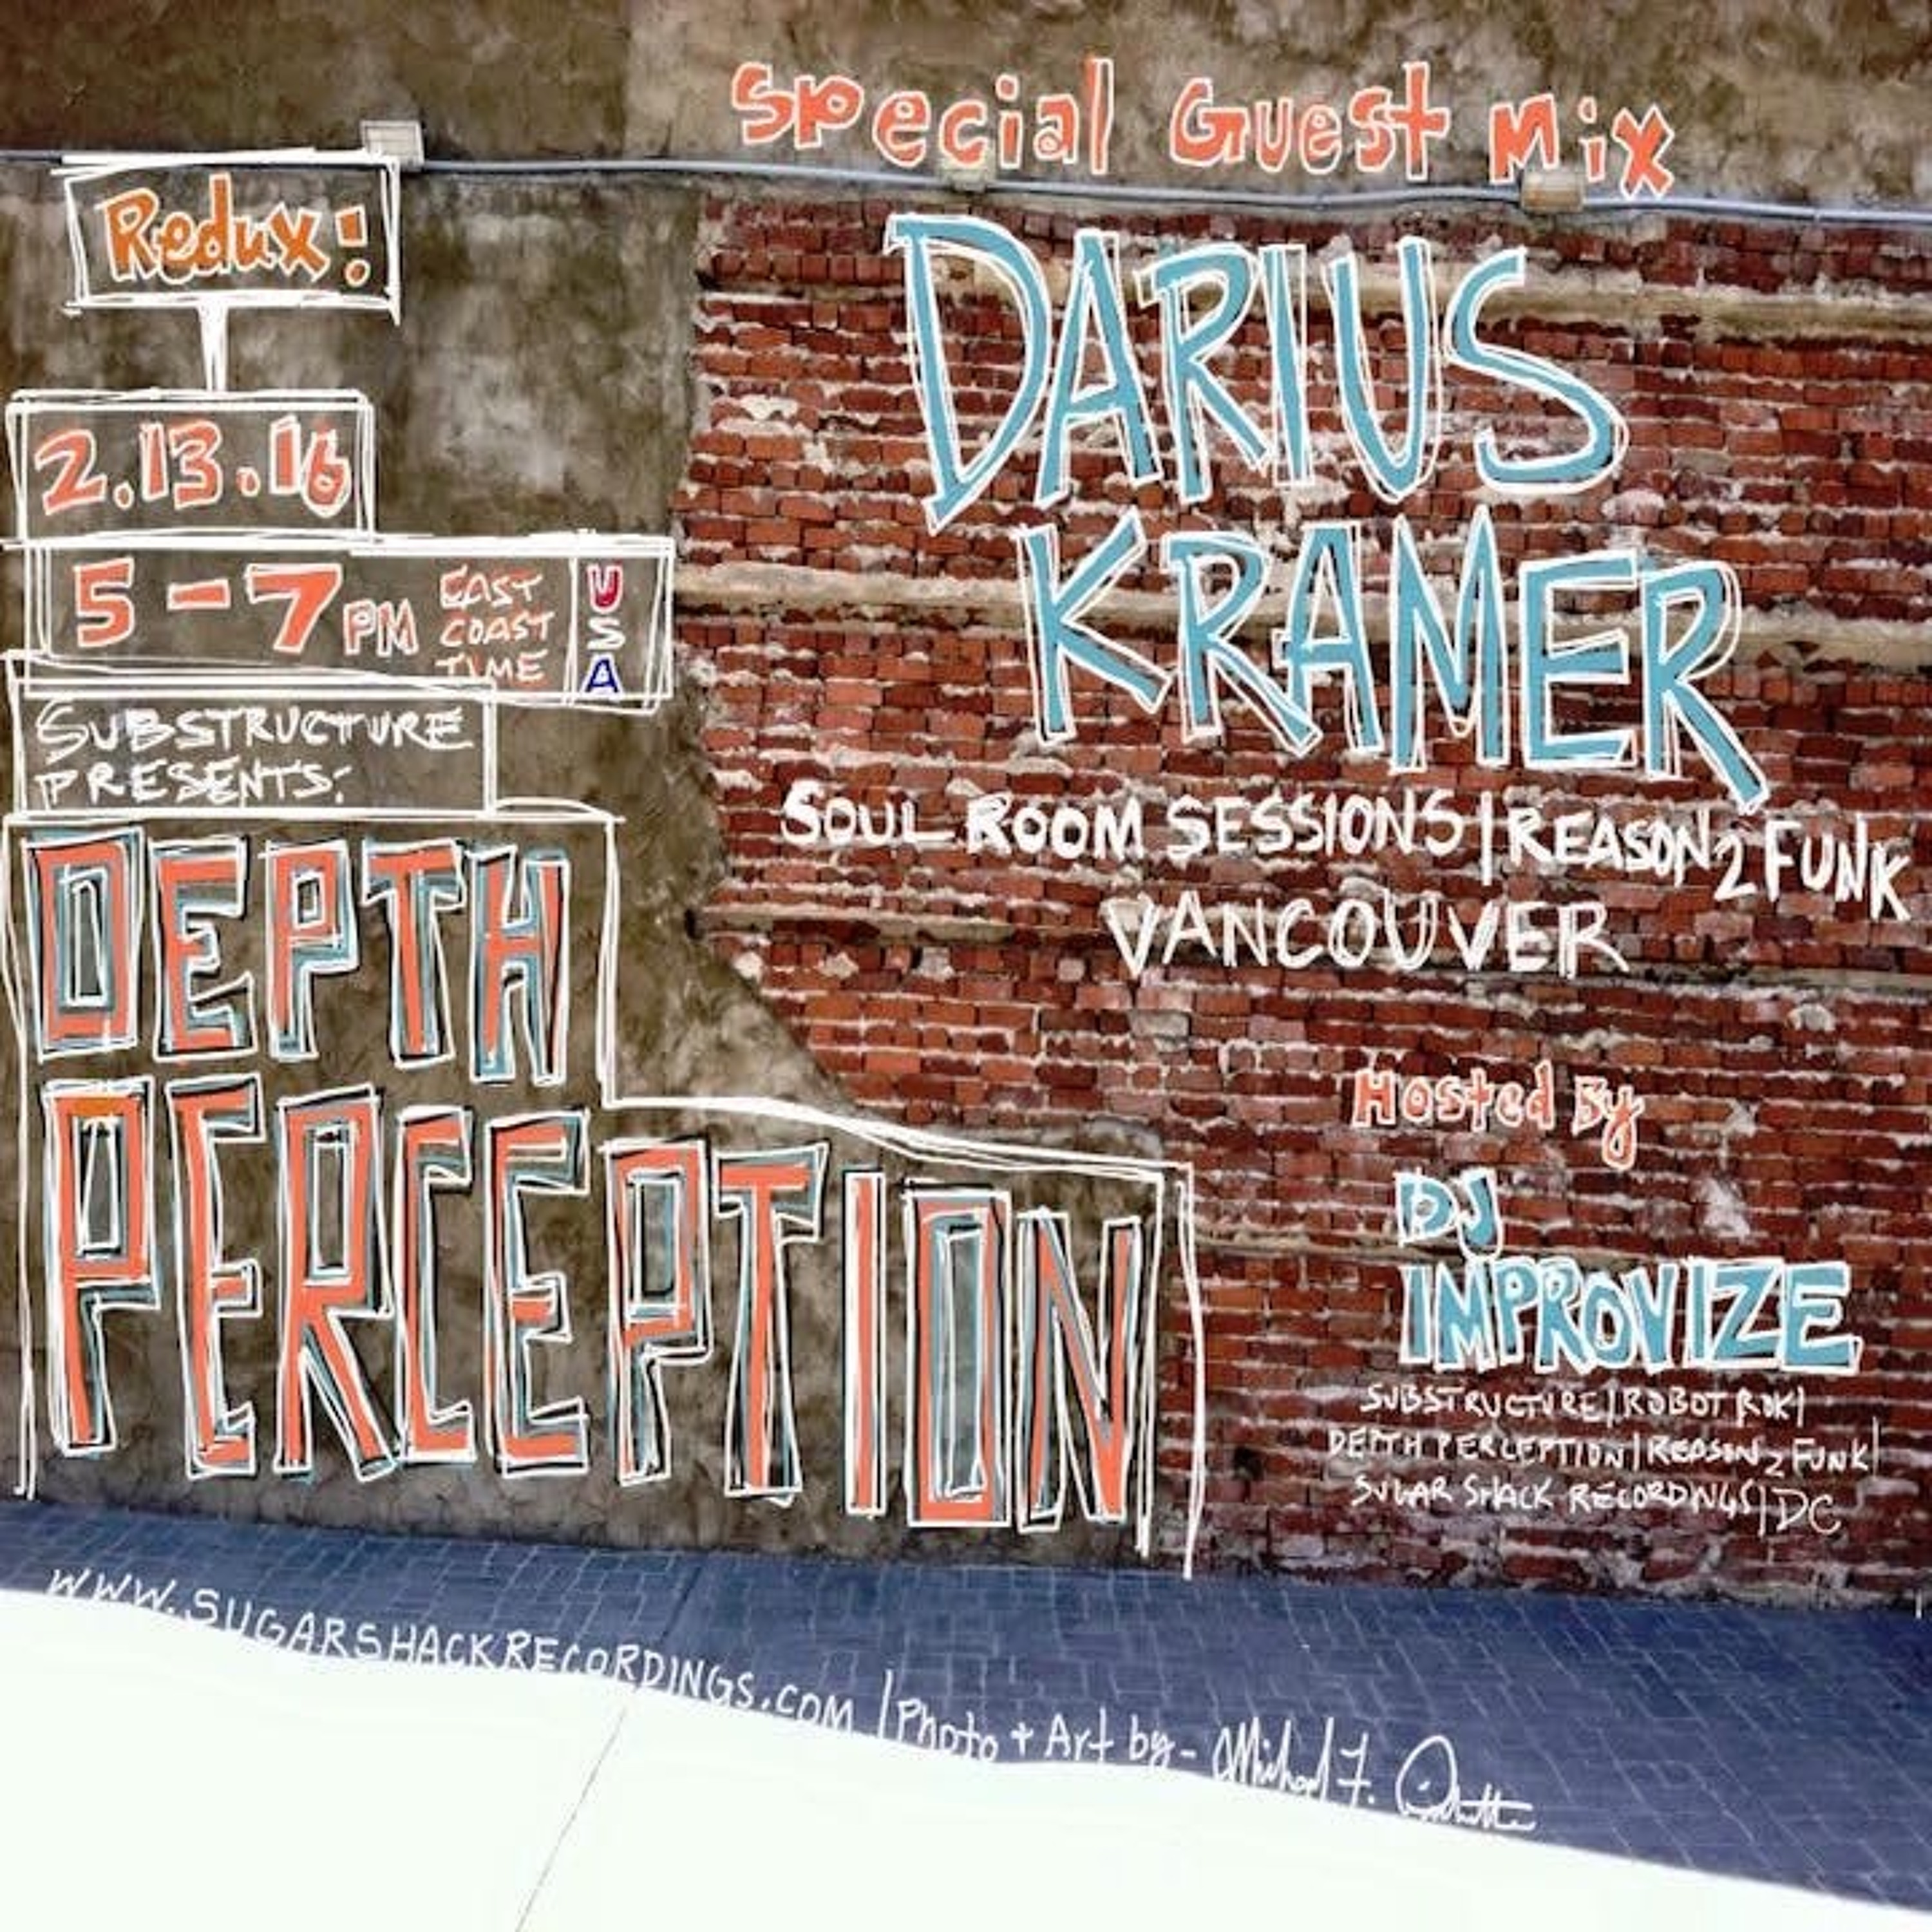 Special Guest Mix
Redux!
DARIUS
KRAMER
2.13.16
5-7 PM EAST COAST TIME USA
SUBSTRUCTURE
PRESENTS:
DEPTH
PERCEPTION
SOUL ROOM SESSIONS | REASON 2 FUNK
VANCOUVER
Hosted By
DJ
IMPROVIZE
SUBSTRUCTURE | ROBOT ROK |
DEPTH PERCEPTION | REASON 2 FUNK |
SUGAR SHACK RECORDINGS | DC
WWW.SUGARSHACKRECORDINGS.COM | Photo + Art by - Michael F.